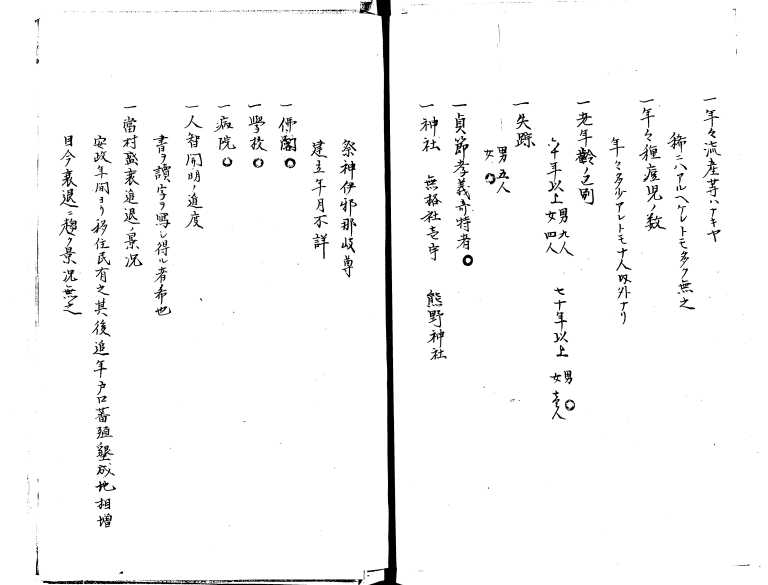 一年々流産等ハナキヤ
稀ニハアルヘケレトモ多ク無之
一年々種痘児ノ数
年々多少アレトモ十人以外ナリ
一老年齢之別
六十年以上 男九人 女四人 七十年以上 男〇 女壱人
一失踪
男五人
女〇
一貞節孝義奇特者〇
一神社 無格社壱宇 熊野神社
祭神伊邪那岐尊
建立年月不詳
一佛閣〇
一學校〇
一病院〇
一人智開明ノ進度
書ヲ讀字ヲ寫シ得ル者希也
一當村盛衰進退ノ景況
安政年間ヨリ移住民有之其後追年戸口蕃殖墾成地相増
目今衰退ニ趨ク景況無之